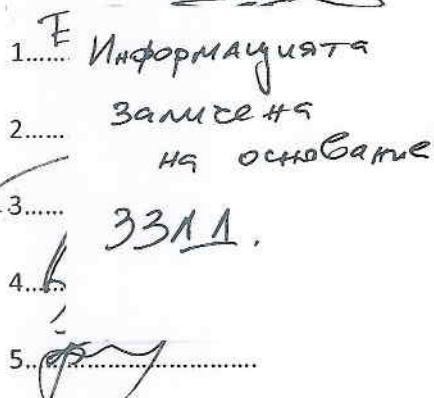 1...... Информацията
2...... заличена
на основание
3...... ЗЗЛД.
4......
5..............................